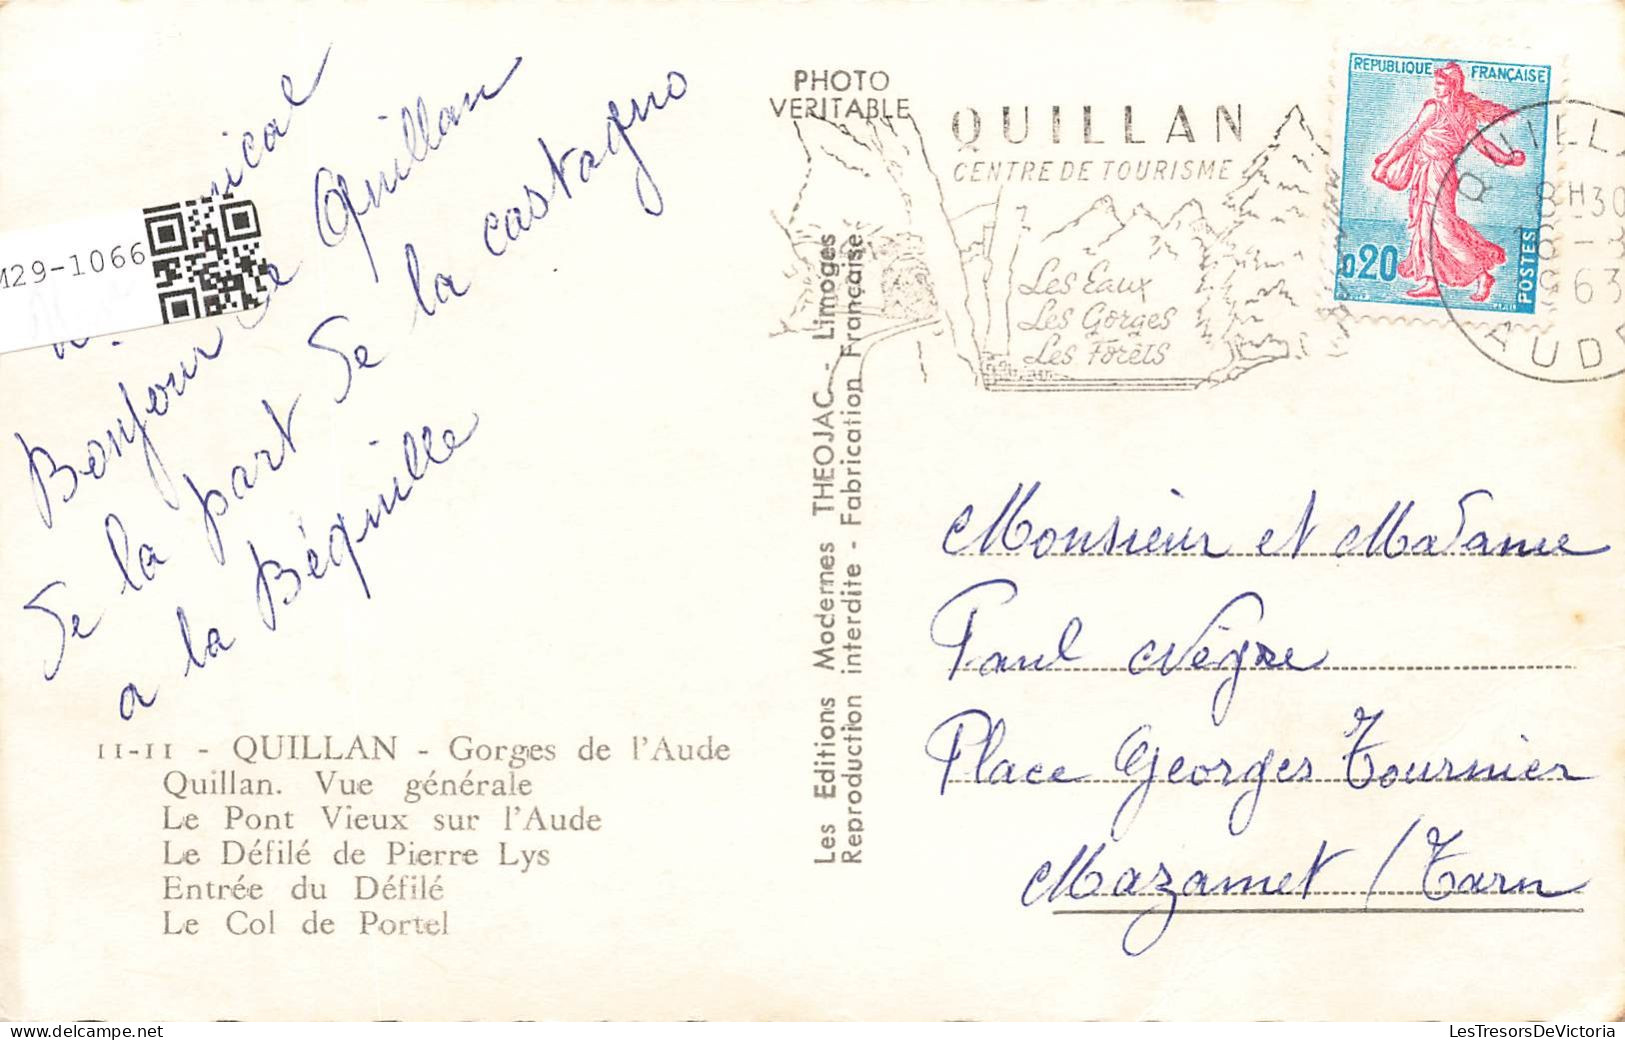 M29-1066
Bonjour de Quillan
de la part de la castagno
a la Béquille
11-11 - QUILLAN - Gorges de l'Aude
Quillan. Vue générale
Le Pont Vieux sur l'Aude
Le Défilé de Pierre Lys
Entrée du Défilé
Le Col de Portel
Les Editions Modernes THEOJAC - Limoges
Reproduction interdite - Fabrication Française
PHOTO
VERITABLE
QUILLAN
CENTRE DE TOURISME
Les Eaux
Les Gorges
Les Forêts
REPUBLIQUE FRANÇAISE
0,20
POSTES
8H30
63
AUDE
Monsieur et Madame
Paul Nègre
Place Georges Tournier
Mazamet / Tarn
LesTresorsDeVictoria